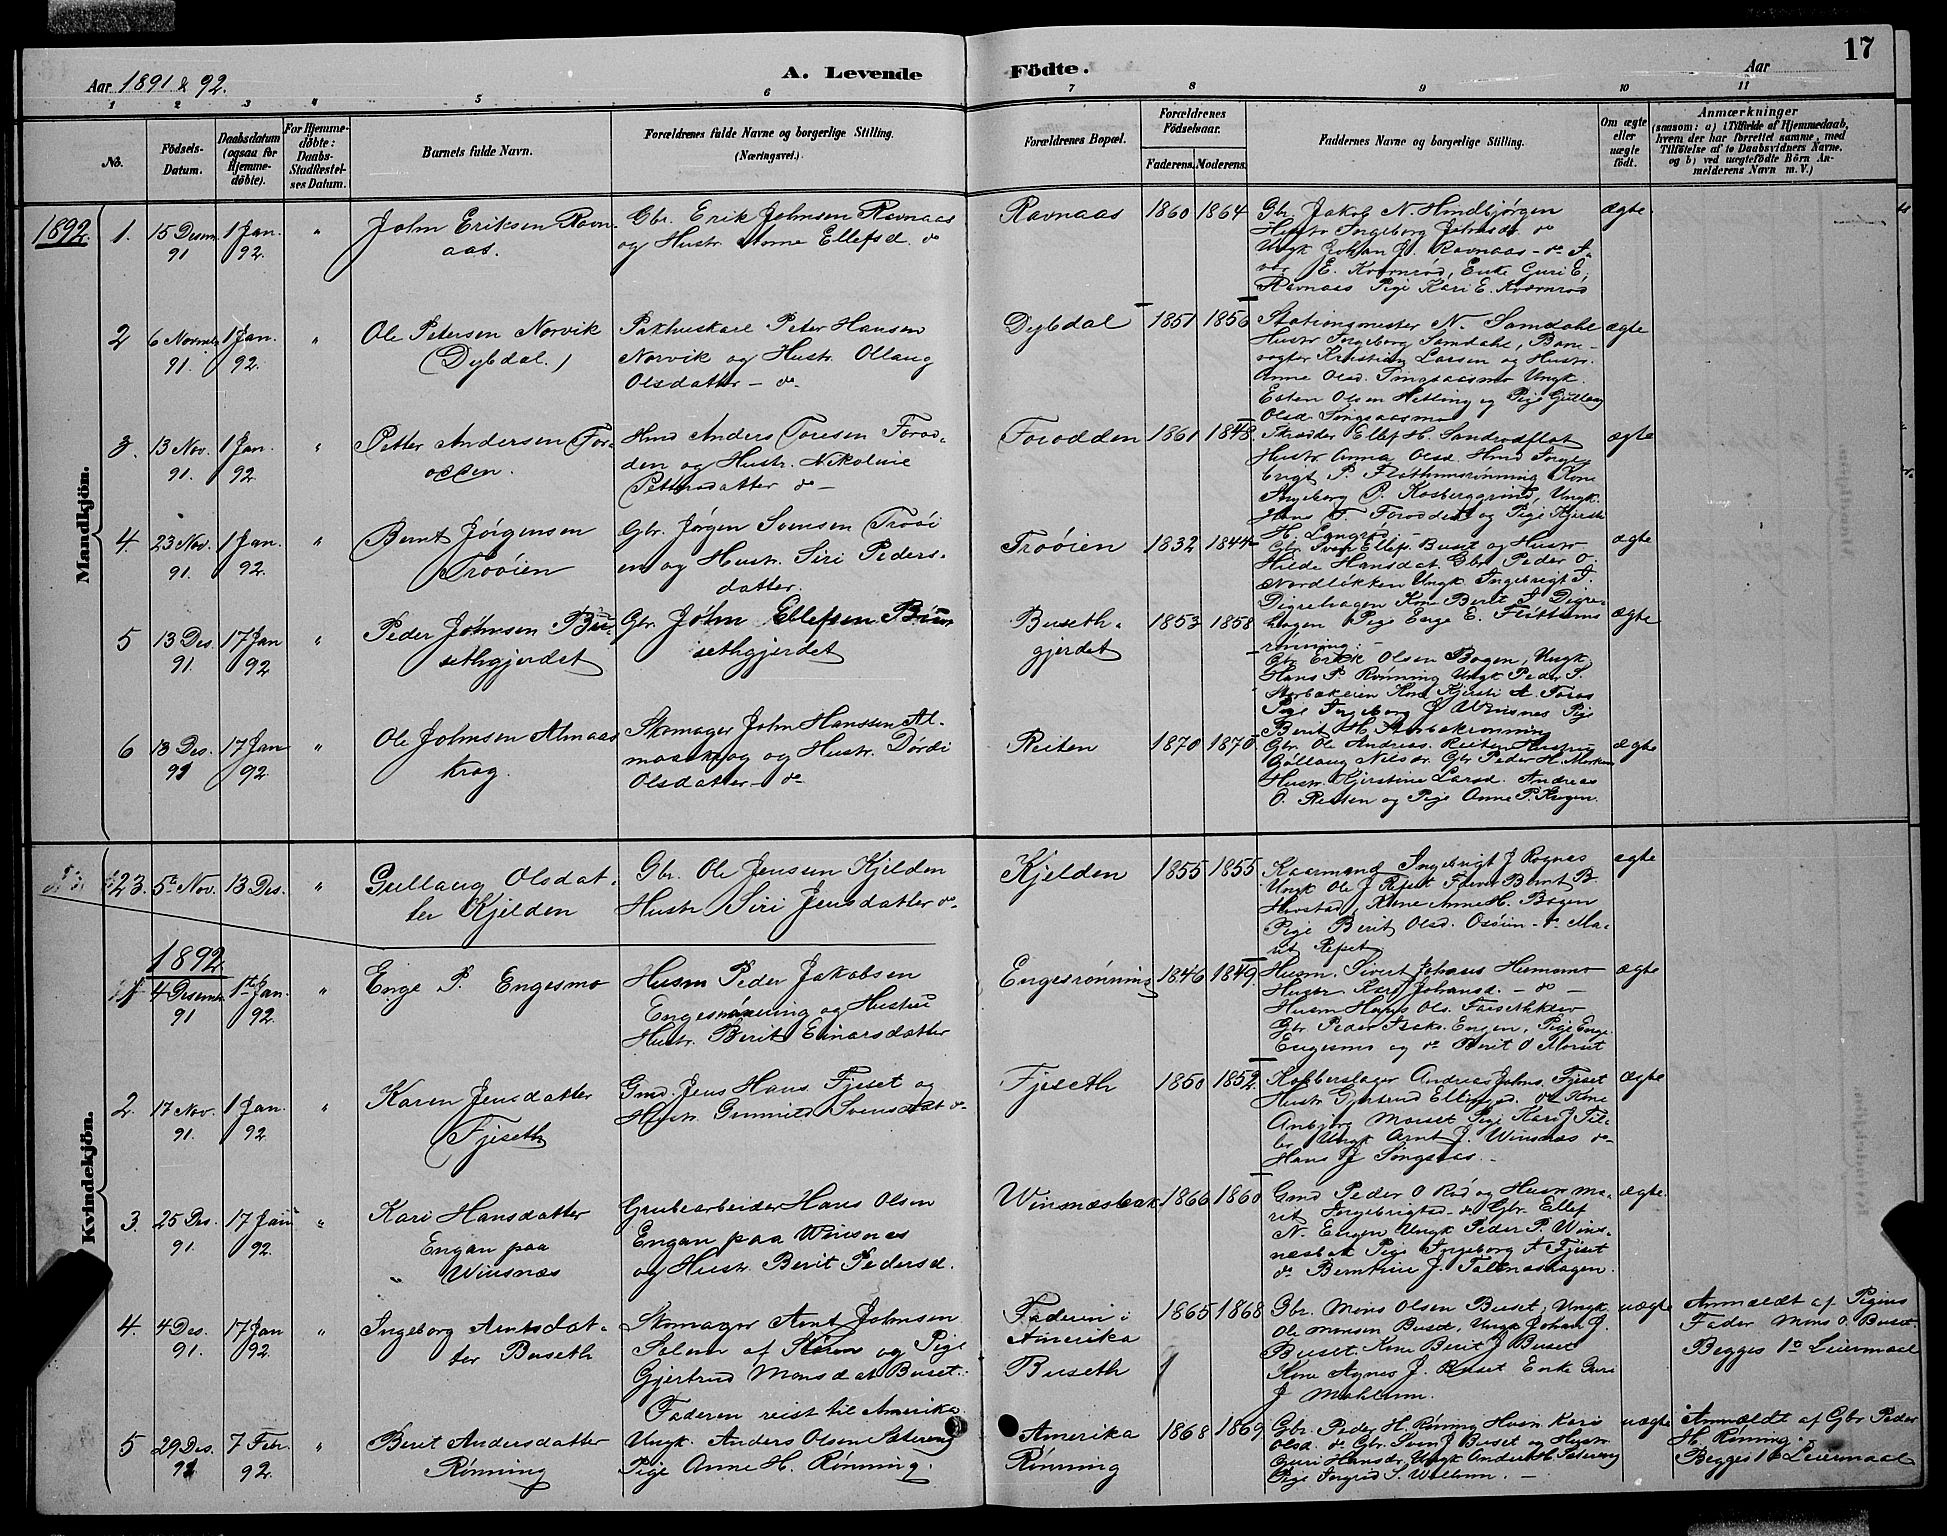 17
Aar 1891 & 92.
A. Levende Födte.
Aar
1 2 3 4 5 6 7 8 9 10 11
No.
Födsels-
Datum.
Daabsdatum
(ogsaa for
Hjemme-
döbte).
For Hjemme-
döbte:
Daabs-
Stadfæstel-
ses Datum.
Barnets fulde Navn.
Forældrenes fulde Navne og borgerlige Stilling.
(Næringsvei.)
Forældrenes Bopæl.
Forældrenes
Födselsaar.
Faderens. Moderens.
Faddernes Navne og borgerlige Stilling.
Om ægte
eller
uægte
født.
Anmærkninger
(saasom: a) i Tilfælde af Hjemmedaab,
hvem der har forrettet samme, med
Tilföielse af to Daabsvidners Navne,
og b) ved uægtefödte Börn An-
melderens Navn m. V.)
Mandkjön.
1892.
1. 15 Desm. 91 1 Jan. 92. "
John Eriksen Ravn-
aas.
Gbr. Erik Johnsen Ravnaas
og Hustr. Anne Ellefsd. do
Ravnaas 1860 1864
Gbr Jakob N. Hindbjørgen
Hustr Ingeborg Johnsdr do
Ungk Johan J. Ravnaas - do
E. Kværnrød, Enke Guri E.
Ravnaas Pige Kari E. Kværnrød
ægte.
2 6 Novmbr 91. 1 Jan. 92. "
Ole Petersen Norvik
(Dybdal.)
Pakhuskarl Peter Hansen
Norvik og Hustr. Ollaug
Olsdatter - do
Dybdal 1851 1856
Stationsmester N. Samdahl
Hustr Ingeborg Samdahl, Bane-
vogter Kristian Larsen og Hustr.
Anne Olsd. Singsaasmo Ungk.
Esten Olsen Hetling og Pige Gullaug
Olsd. Singsaasmo
ægte
3. 13 Nov. 91. 1 Jan. 92 "
Petter Andersen For-
odden.
Hmd Anders Toresen Forod-
den og Hustr. Nikoline
Pettersdatter do -
Forodden 1861 1848
Skrædder Ellef H. Sandrodflat
Hustr Anna Olsd. Hmd Inge-
brigt P. Flotthumsrønning Kone
Ingeborg P. Kosberggrind, Ungk.
Hans T. Forodden og Pige Kjersti
H. Langrø -
ægte
4. 23 Nov. 91. 1 Jan. 92 "
Bernt Jørgensen
Trøøien
Gbr. Jørgen Svensen Trøøi
en og Hustr. Siri Peders-
datter.
Trøøien 1832 1844
Gbr Sven Ellefs. Buset og Hustr
Hilde Hansdat. Gbr. Peder O.
Nordløkken Ungk Ingebrigt I.
Digrehagen Kone Berit I Digre-
hagen Pige Enge E. Flottums
rønning. -
ægte
5 13 Des. 91. 17 Jan 92 "
Peder Johnsen Bu-
sethgjerdet
Gbr. John Ellefsen Bu-
sethgjerdet
Buseth-
gjerdet
1853 1858
Gbr Erik Olsen Bogen, Ungk
Hans P. Rønning Ungk Peder S.
Storbækeien Kone Kjersti A. Foros
Pige Ingeborg J Winsnes Pige
Berit H. Storbækrønning
ægte
6 13 Des. 91 17 Jan 92 "
Ole Johnsen Almaas
krog.
Skomager John Hanssen Al-
maaskrog og Hustr. Dordi
Olsdatter - do
Reiten 1870 1870
Gbr. Ole Andreas. Reiten Hustru
Gollaug Nilsdr. Gbr Peder H. Morken
Hustr Kjerstine Larsd. Andreas
O. Reiten og Pige Anne P. Krogen.
ægte
Kvindekjön.
23. 5te Nov. 13 Des. "
Gullaug Olsdat-
ter Kjelden
Gbr. Ole Jensen Kjelden
Hustr Siri Jensdatter do.
Kjelden 1855 1855
Kaarmand Ingebrigt J Rognes
Ungk Ole J Refset Bernt B
Hovstad, Kone Anne H. Bogen
Pige Berit Olsd. Osøien - do Ma-
rit Refset
ægte
1892
1 4 Desemr 91 1te Jan. 92. "
Enge P. Engesmo
Husm Peder Jakobsen
Engesrønning og Hustru
Hustr. Berit Einarsdatter
Engesrønning 1846 1849
Husm. Sivert Johans Hermomo
Hustr Kari Johansd. - do -
Husm Hans Ols. Forsethklev
Gbr Peder Isaks. Engen, Pige Enge
Engesmo og do Berit O Morset
ægte
2. 17 Nov. 91. 1 Jan. 92 "
Karen Jensdatter
Fjeseth
Gmd. Jens Hans. Fjeset og
Hustr. Gunnild Svensdat do
Fjeseth 1850 1852
Kobberslager Andreas Johns. Fjeset
Hustr. Gjertrud Ellingsd. do Kone
Anbjørg Morset Pige Kari J Fil-
Ungk Arnt J. Winsnæs do
Hans J Singsaas. -
ægte
3. 25 Des. 91. 17 Jan 92 "
Kari Hansdatter
Engan paa
" Winsnæs
Grubearbeider Hans Olsen
Engan paa Winsnes
og Hustr. Berit Pedersd.
Winsnæsbak 1866 1860
Gmd Peder O Rød og Hustr Ma-
rit Ingebrigtsd - do Gbr. Ellef
N. Engen Ungk Peder P. Wins-
næsbak Pige Ingeborg A Fjeset
do Berntine J. Talsnæshagen.
ægte.
4. 4 Des. 91. 17 Jan 92 "
Ingeborg Arntsdat-
ter Buseth
Skomager Arnt Johnsen
Solem af Horg og Pige
Gjertrud Monsdat Buset.
Faderen reist til Amerika.
Faderen i
Amerika
Buseth
1865 1868
Gbr. Mons Olsen Buset, Ungk
Ole Monsen Buset, Ungk Johan J.
Buset Kone Berit J Buset
Kone Agnes J. Buset Enke Guri
J Mohlum.
uægte
Anmældt af Pigens
Fader Mons O. Buset.
Begges 1ste Leiermaal
5 29 Des. 91 7 Febr. 92. "
Berit Andersdatter
Rønning
Ungk. Anders Olsen Sætereng
Pige Anne H. Rønning.
Amerika
Rønning
1868 1869
Gbr. Peder H. Rønning Husn Kari
Olsd. do Gbr. Sven J Buset og Hustr
Guri Hansdr. Ungk Anders H Sætereng
Pige Ingrid S. Wollum. -
uægte
Anmældt af Gbr Peder
H. Rønning.
Begges 1ste Leiermaal